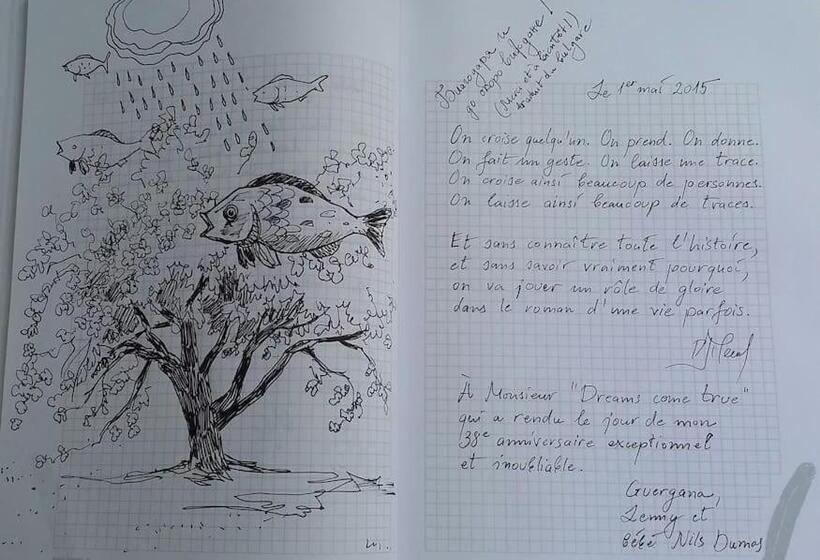 Благодаря и
до скоро виждане !
(Merci et à bientôt!)
traduit du bulgare
Le 1er mai 2015
On croise quelqu'un. On prend. On donne.
On fait un geste. On laisse une trace.
On croise ainsi beaucoup de personnes.
On laisse ainsi beaucoup de traces.
Et sans connaître toute l'histoire,
et sans savoir vraiment pourquoi,
on va jouer un rôle de gloire
dans le roman d'une vie parfois.
À Monsieur "Dreams come true"
qui a rendu le jour de mon
38e anniversaire exceptionnel
et inoubliable.
Guergana,
Lenny et
bébé Nils Dumas